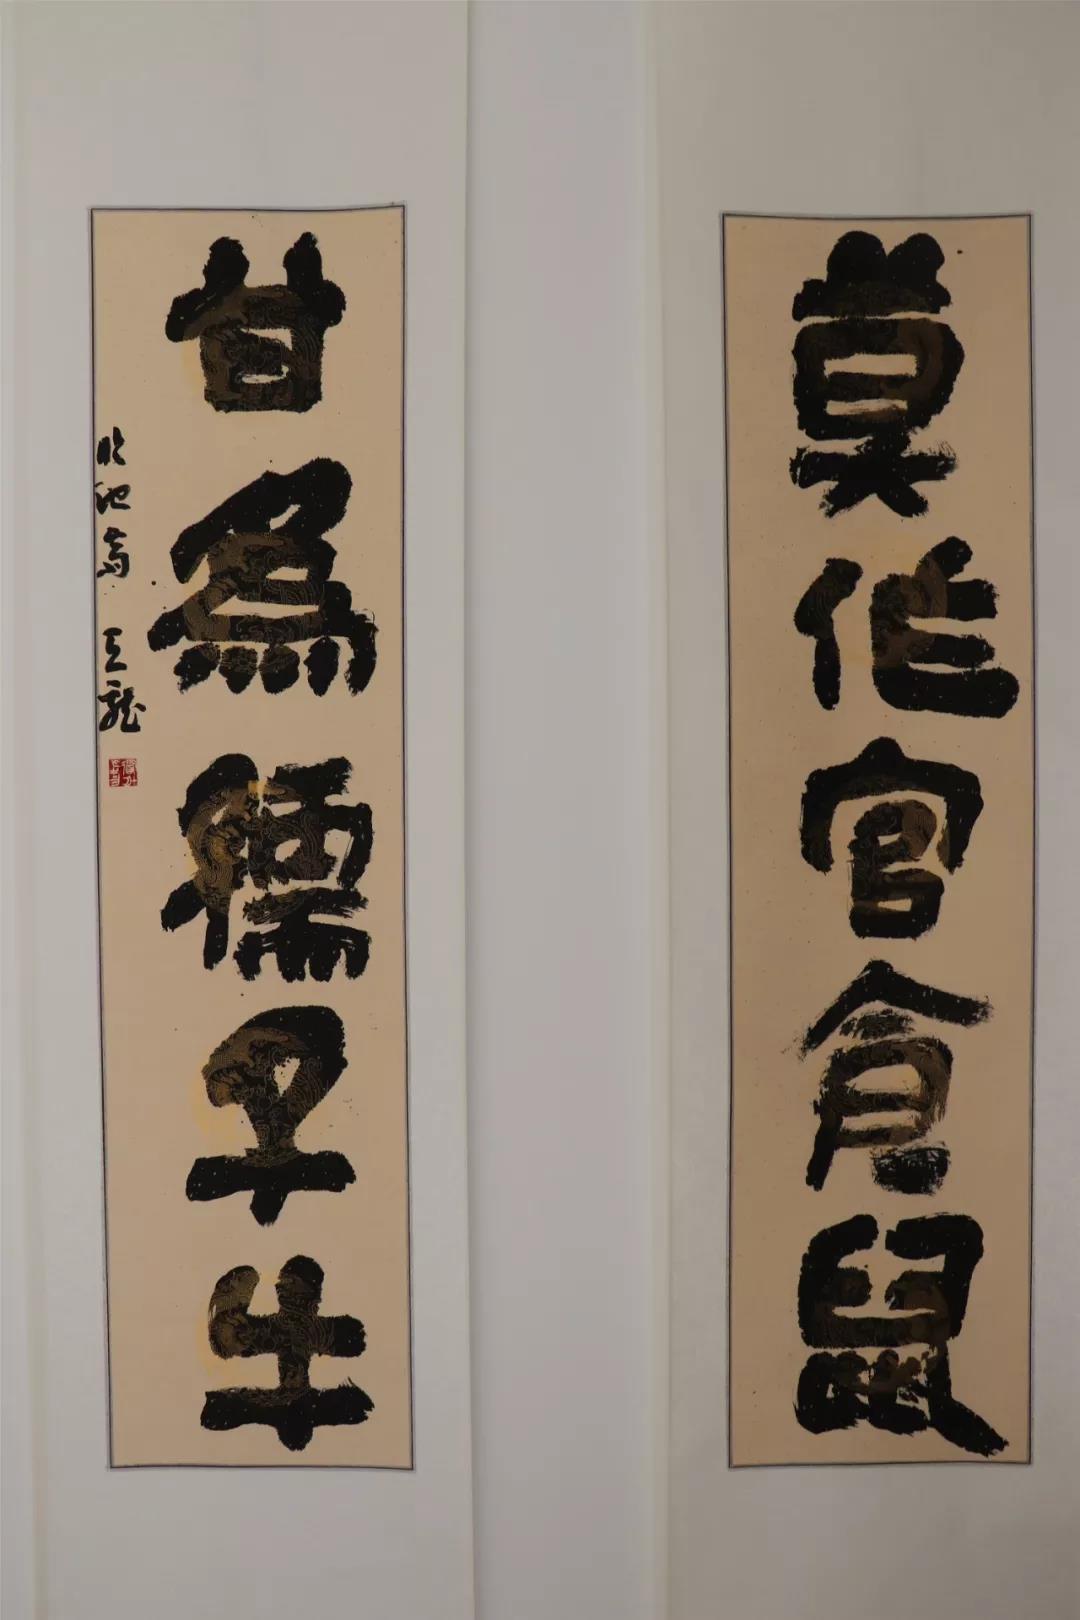 莫作官倉鼠
甘為孺子牛
池 龍